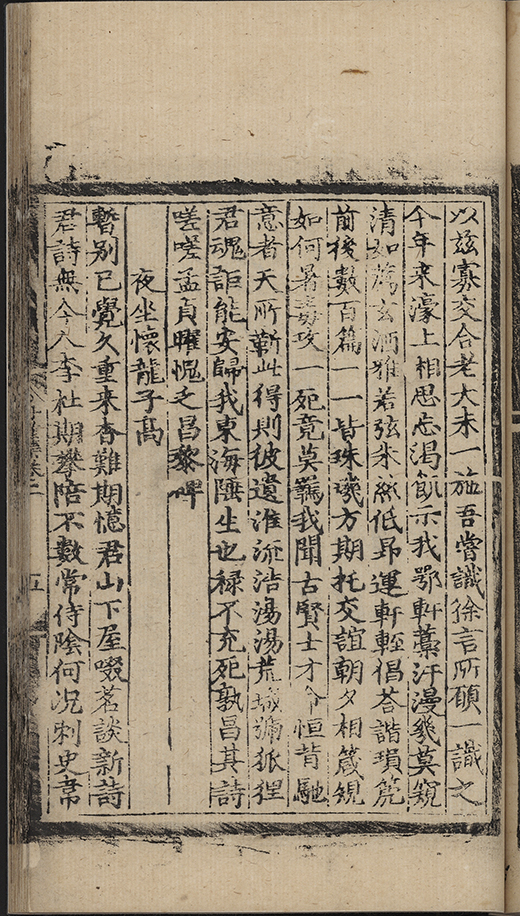 以茲寡交合老大未一施吾嘗識徐言所碩一識之
今年来濠上相思忘渴飢示我鄂軒藁汗漫幾莫窺
清如薦玄酒雅若弦朱絲低昻運軒輊倡荅諧瑣箎
前後數百篇一一皆珠璣方期托交誼朝夕相箴規
如何暑毒攻一死竟莫醫我聞古賢士才令恒背馳
意者天所靳此得則彼遺淮流浩湯湯荒城獮狐狸
君魂詎能安歸我東海陲生也禄不充死孰昌其詩
嗟嗟孟貞曜愧乏昌黎碑
夜坐懷龍子高
暫别已覺久重来杳難期憶君山下屋啜茗談新詩
君詩無今人李杜期攀陪不數常侍陰何况刺史韋
五